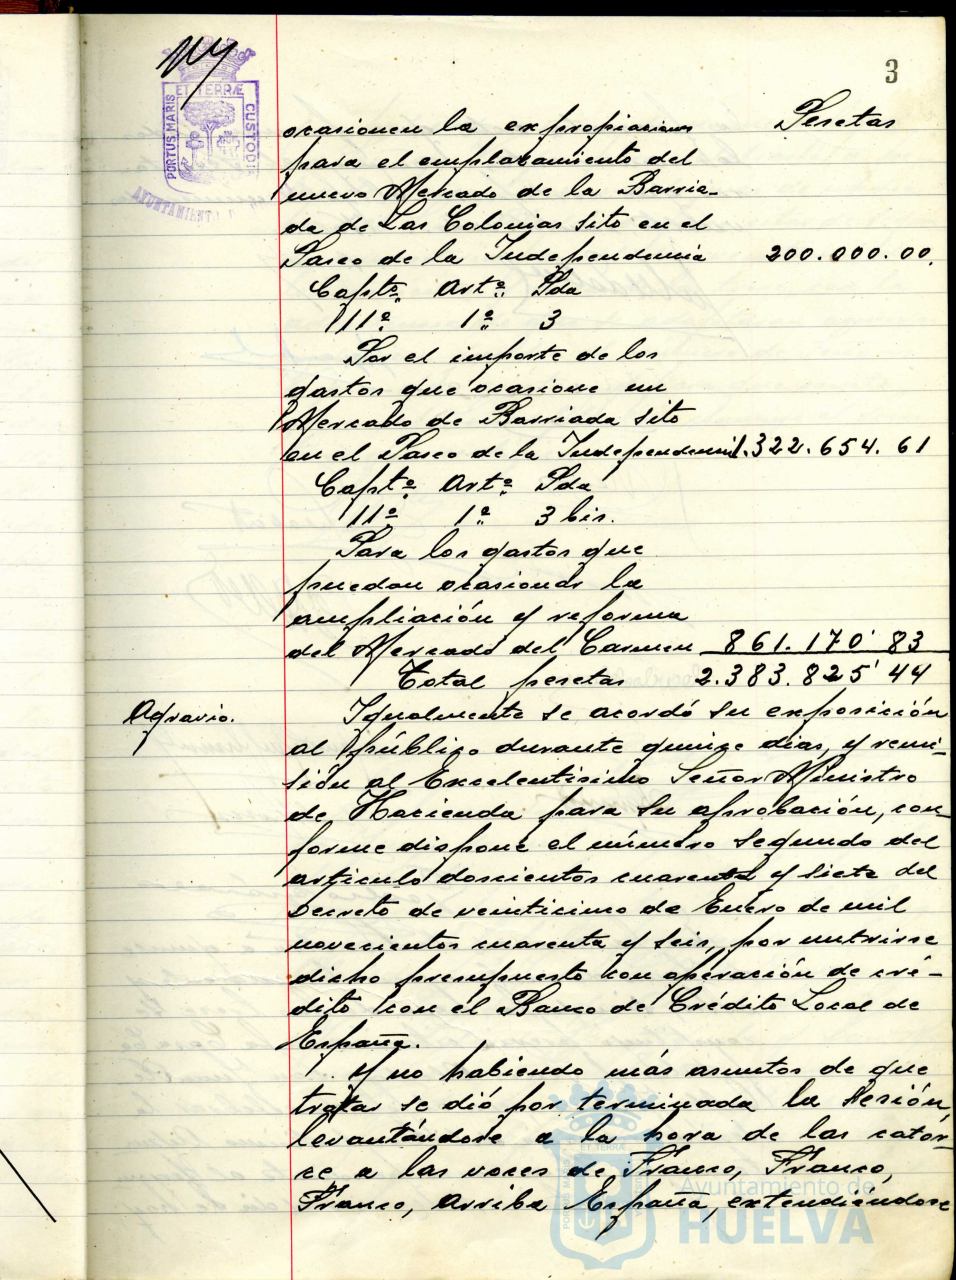 3
ET TERRÆ
PORTUS MARIS
CUSTODIA
AYUNTAMIENTO
ocasionen la expropiaciones Pesetas
para el emplazamiento del
nuevo Mercado de la Barria-
da de Las Colonias sito en el
Paseo de la Independencia 200.000.00.
Captº. Artº. Pda
11º. 1º. 3
Por el importe de los
gastos que ocasione un
Mercado de Barriada sito
en el Paseo de la Independencia 1.322.654.61
Captº. Artº. Pda
11º. 1º. 3 bis.
Para los gastos que
puedan ocasionar la
ampliación y reforma
del Mercado del Carmen 861.170'83
Total pesetas 2.383.825'44
Agravio.
Igualmente se acordó su exposición
al público durante quince dias, y remi-
sión al Excelentisimo Señor Ministro
de Hacienda para su aprobación, con-
forme dispone el número segundo del
artículo doscientos cuarenta y siete del
Decreto de veinticinco de Enero de mil
novecientos cuarenta y seis, por nutrirse
dicho presupuesto con operación de cré-
dito con el Banco de Crédito Local de
España.
Y no habiendo más asuntos de que
tratar se dió por terminada la sesión,
levantándose a la hora de las cator-
ce a las voces de, Franco, Franco,
Franco, Arriba España, extendiéndose
Ayuntamiento de
HUELVA